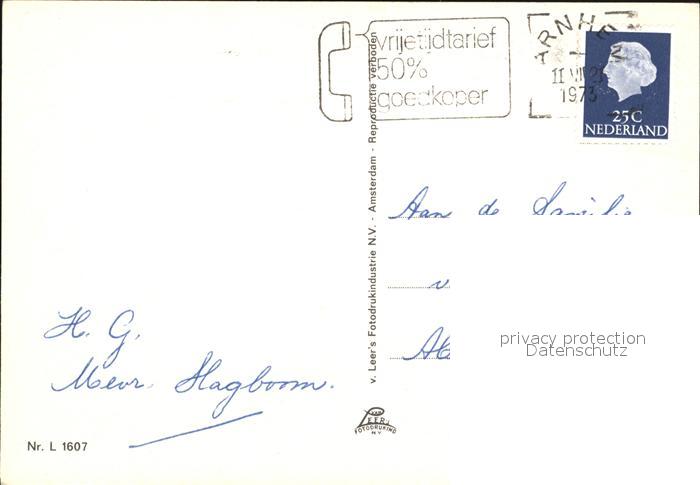 vrijetijdtarief
50%
goedkoper
ARNHEM
1973
25C
NEDERLAND
v. Leer's Fotodrukindustrie N.V. - Amsterdam - Reproductie verboden
Aan de Familie
v
H. G.
Mevr. Hagboom.
privacy protection
Datenschutz
VAN
LEER'S
FOTODRUKIND
N.V.
Nr. L 1607